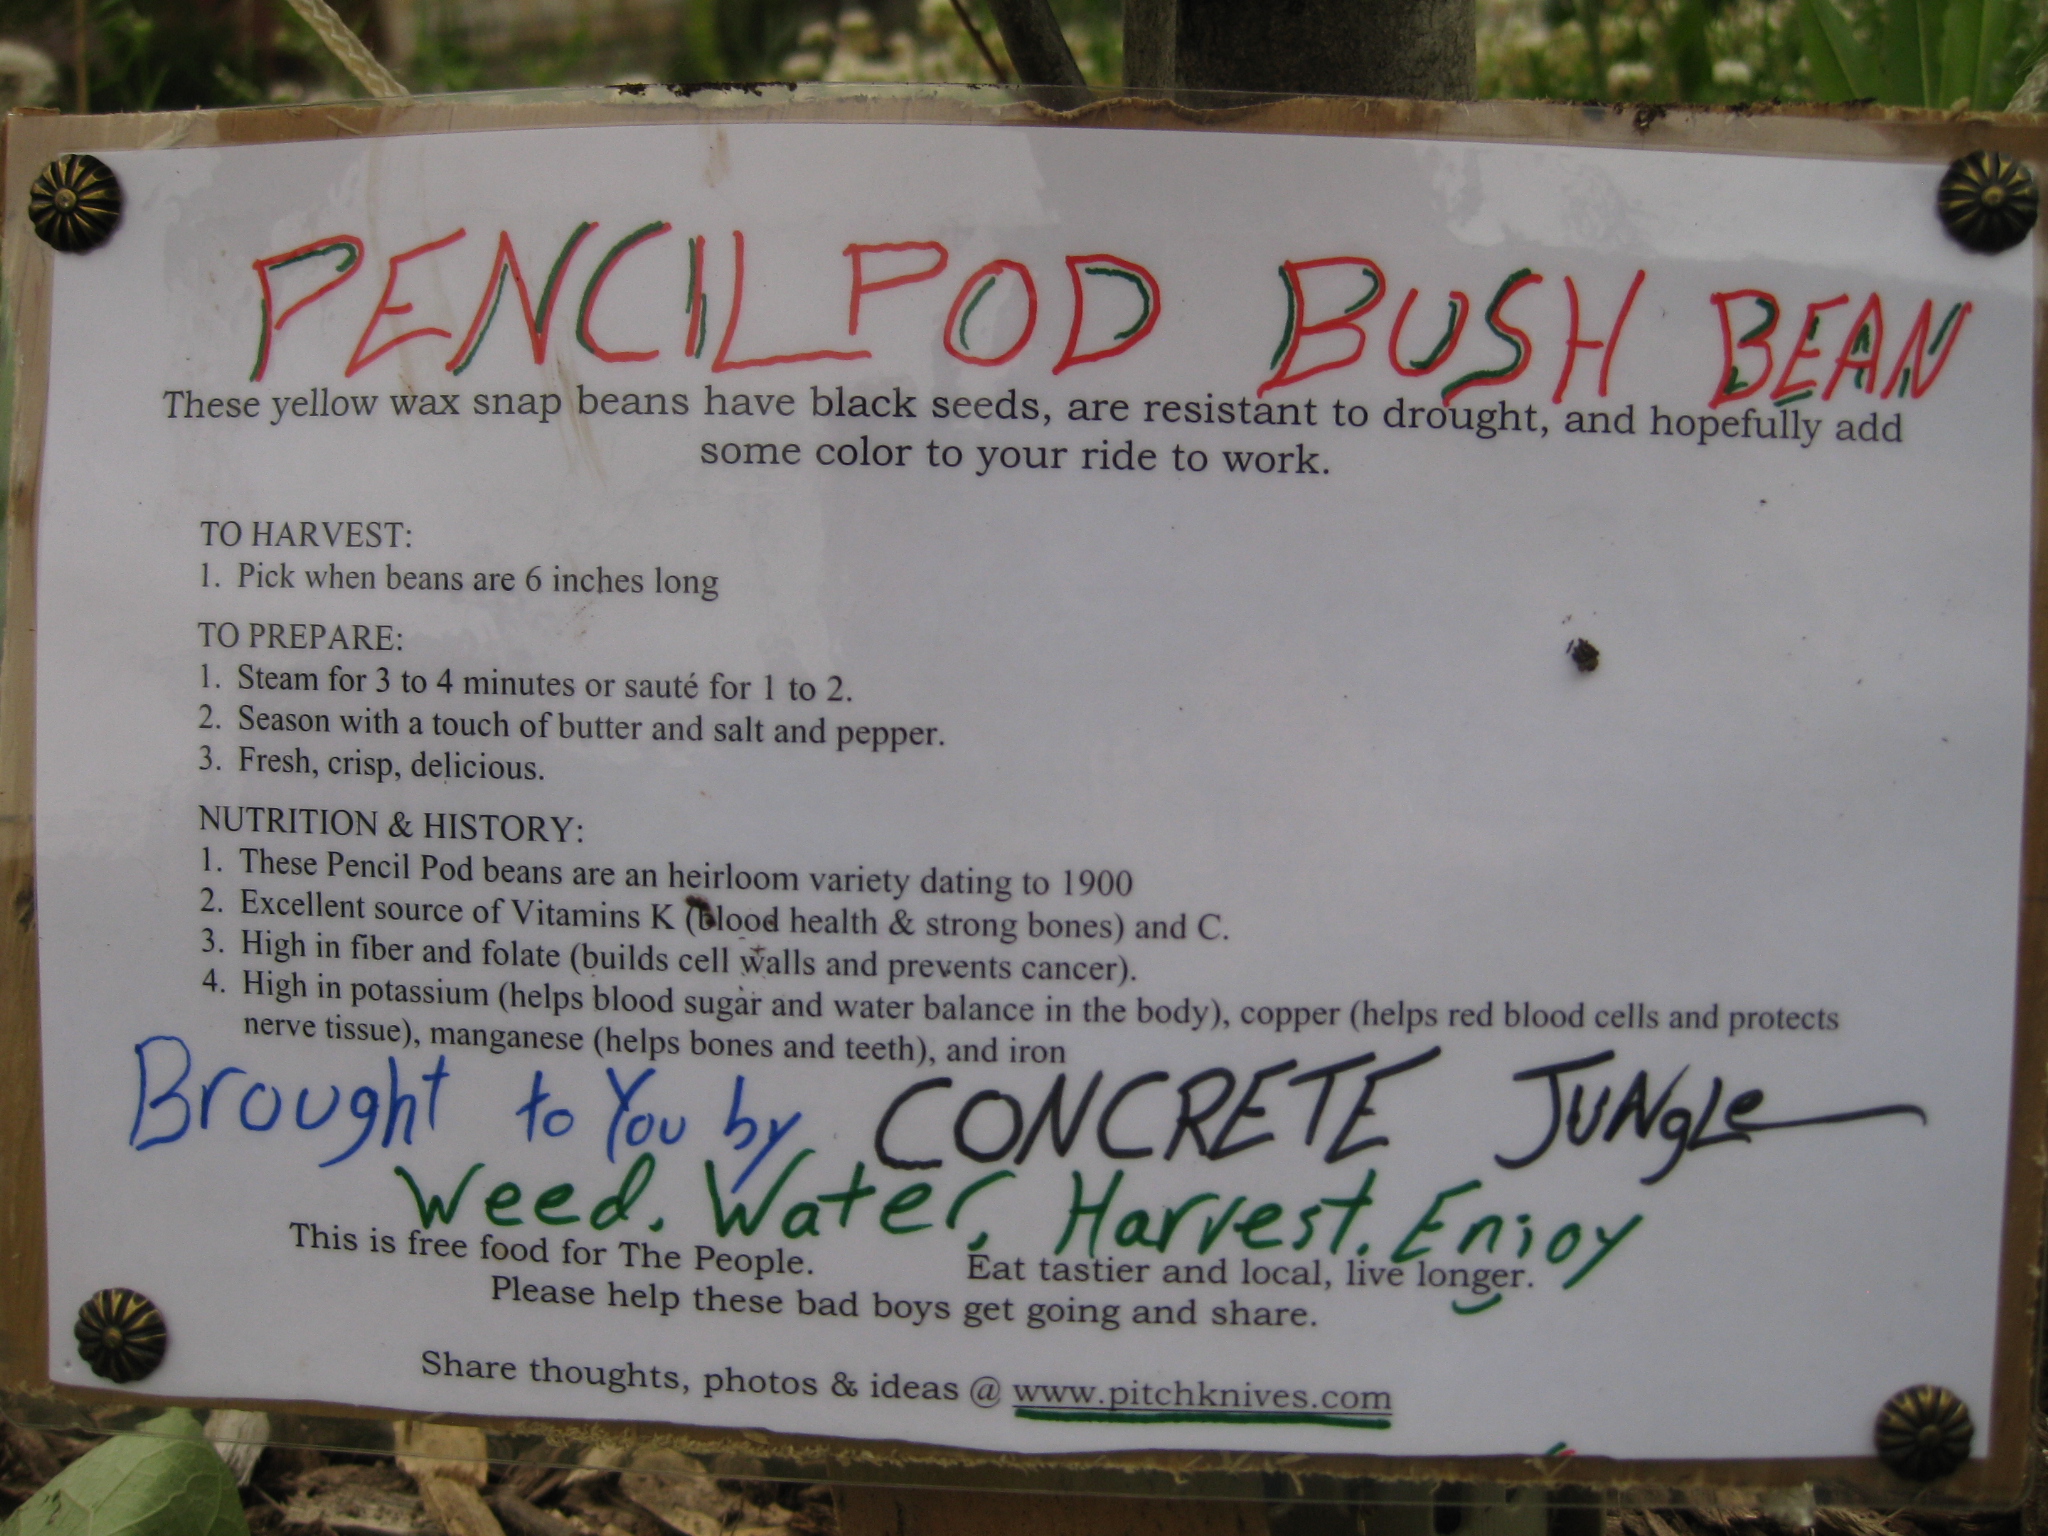 PENCIL POD BUSH BEAN
These yellow wax snap beans have black seeds, are resistant to drought, and hopefully add
some color to your ride to work.
TO HARVEST:
1. Pick when beans are 6 inches long
TO PREPARE:
1. Steam for 3 to 4 minutes or sauté for 1 to 2.
2. Season with a touch of butter and salt and pepper.
3. Fresh, crisp, delicious.
NUTRITION & HISTORY:
1. These Pencil Pod beans are an heirloom variety dating to 1900
2. Excellent source of Vitamins K (blood health & strong bones) and C.
3. High in fiber and folate (builds cell walls and prevents cancer).
4. High in potassium (helps blood sugar and water balance in the body), copper (helps red blood cells and protects
nerve tissue), manganese (helps bones and teeth), and iron
Brought to You by CONCRETE JUNgLe
Weed. Water, Harvest. Enjoy
This is free food for The People. Eat tastier and local, live longer.
Please help these bad boys get going and share.
Share thoughts, photos & ideas @ www.pitchknives.com